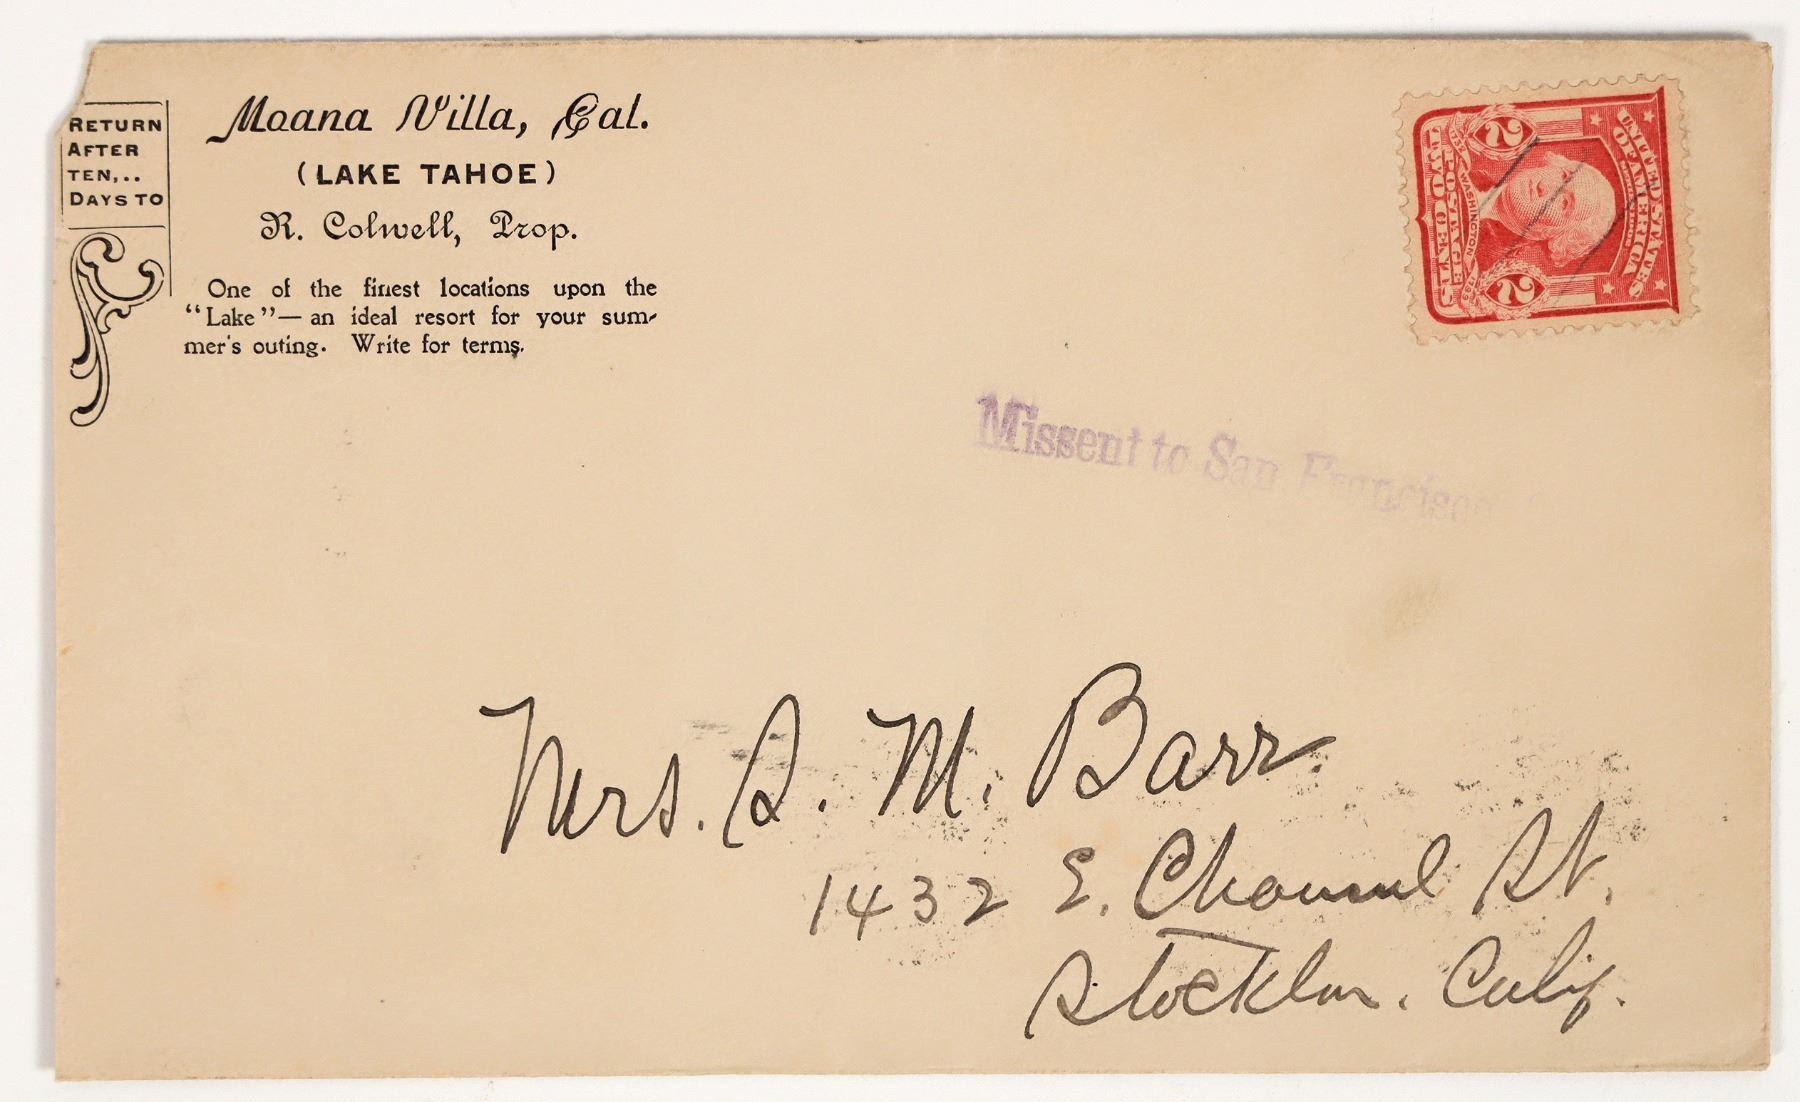 RETURN
AFTER
TEN,..
DAYS TO
Moana Villa, Cal.
(LAKE TAHOE)
R. Colwell, Prop.
One of the finest locations upon the
“Lake”— an ideal resort for your sum-
mer's outing. Write for terms.
UNITED STATES
OF AMERICA
1732 WASHINGTON 1799
POSTAGE
TWO CENTS
2 2
Missent to San Francisco
Mrs. S. M. Barr.
1432 E. Channel St.
Stockton. Calif.